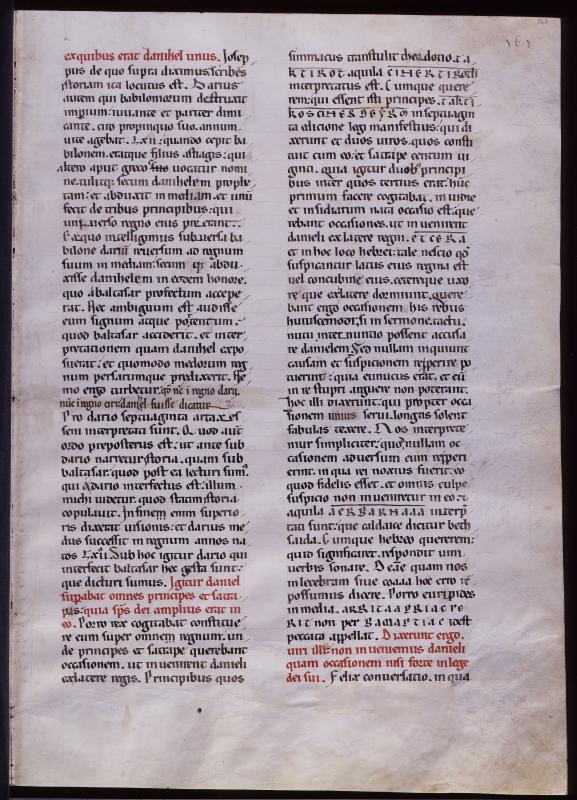 161
161
ex quibus erat danihel unus. Josep
pus de quo supra diximus. scribes
istoriam ita locutus est. Darius
autem qui babiloniorum destruxit
imperium: iuuante et pariter dimi
cante. cito propinquo suo. annum
uite agebat. Lxii. quando cepit ba
bilonem. eratque filius astiagis: qui
altero aput greco uocatur nomi
ne. tulitq; secum danihelem prophe
tam: et abduxit in mediam. et unū
fecit de tribus principibus: qui
uniuerso regno eius preerant.
Ex quo intelligimus subuersa ba
bilone dariū reuersum ad regnum
suum in mediam: secum q; abdu
xisse danihelem in eodem honore.
quo abaltasar profectum accepe
rat. Nec ambiguum est audisse
eum signum atque potentum.
quod baltasar acciderit. et inter
pretationem quam danihel expo
suerat: et quomodo medorum reg
num persarumque predixerit. Ne
mo ergo turbetur. qd nc̄ ī regno darii
nūc ī regno ciri daniel fuisse dicatur
Pro dario septuaginta artaxes
sem interpretati sunt. Quod aut
ordo preposterus est: ut ante sub
dario narretur istoria. quam sub
baltasar: quod post ea lecturi sum̄.
qui a dario interfectus est. illum
michi uidetur. quod statim istoria
copulauit. In finem enim superio
ris dixerat uisionis: et darius me
dus successit in regnum annos na
tos Lxii. Sub hoc igitur dario qui
interfecit baltasar hec gesta sunt:
que dicturi sumus. Igitur daniel
supabat omnes principes et satra
pas: quia sp̄s dei amplius erat in
eo. Porro rex cogitabat constitue
re eum super omnem regnum. un
de principes et satrape querebant
occasionem. ut inuenirent danieli
ex latere regis. Principibus quos
simmacus transtulit theodotio. ta
KTIROT aquila CINEKTIKOTH
interpretatus est. Cumque quere
rem: qui essent isti principes. TAKTI
KOSCINEKDEYRO in septuagin
ta edicione legi manifestius: qui di
xerunt et duos uiros. quos consti
tuit cum eo: et satrape centum ui
ginti. quia igitur duob; principi
bus inter quos tertius erat: hūc
primum facere cogitabat. inuidie
et insidiarum nata occasio est. que
rebant occasiones. ut inuenirent
danieli ex latere regni. ET CERA
et in hoc loco hebrei: tale nescio qd̄
suspicantur latus eius regina est
uel concubine eius. cetereque uxo
re que ex latere dormiunt. quere
bant ergo occasionem his rebus
huiuscemodi. si in sermone. tactu.
nutu. internuntio possent accusa
re danielem. Sed nullam inquiunt
causam et suspicionem repperire po
tuerunt: quia eunucus erat. et eū
in re stupri arguere non poterant.
hoc illi dixerunt. qui propter occa
sionem unius serui. longas solent
fabulas texere. Nos interprete
mur simpliciter: quod nullam oc
casionem aduersum eum repperi
erint. in qua rei noxius fuerit. eo
quod fidelis esset. et omnis culpe
suspicio non inueniretur in eo.
aquila interp̄
tati sunt: que caldaice dicitur bech
saida. Cumque hebreo quererem:
quid significaret. respondit uim
uerbis sonare. Deāe quam nos
inlecebram siue hoc erro rē
possumus dicere. Porro euripides
in media.
non per idest
peccata appellat. Dixerunt ergo.
uiri illi: non inueniemus danieli
quam occasionem nisi forte in lege
dei sui. Felix conuersatio. in qua